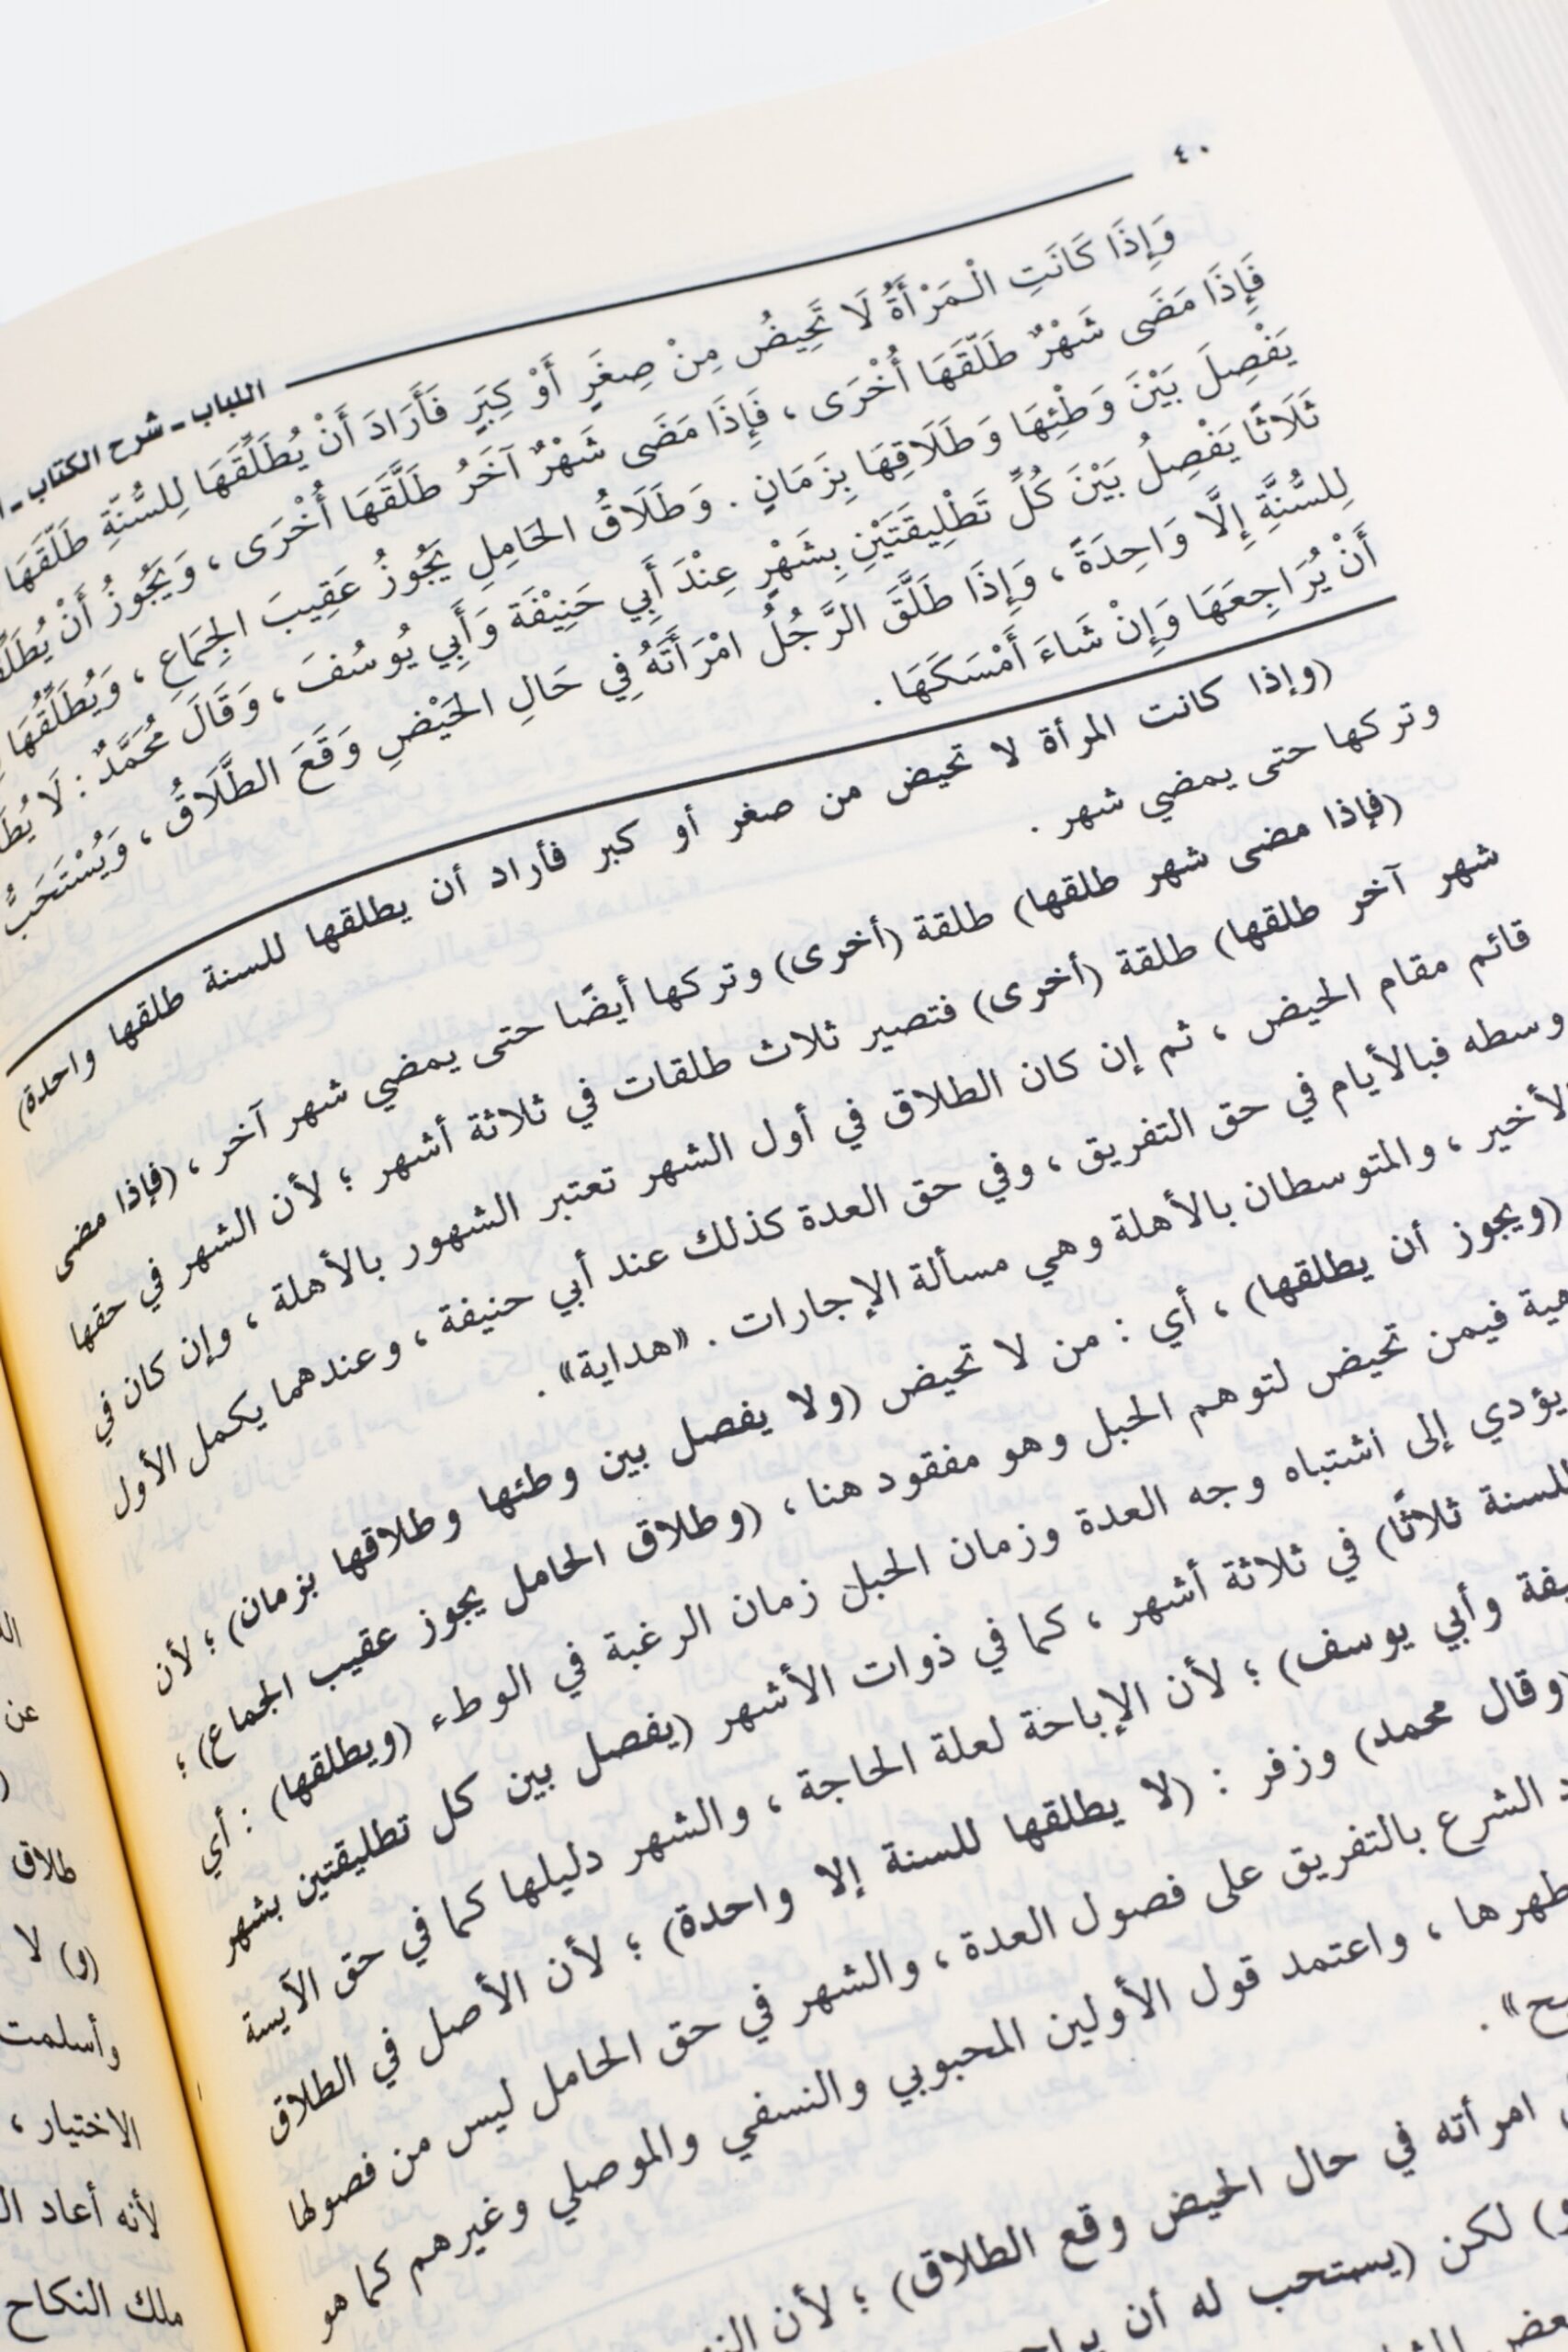 ٤٠
اللباب - شرح الكتاب -
وَإِذَا كَانَتِ الْمَرْأَةُ لَا تَحِيضُ مِنْ صِغَرٍ أَوْ كِبَرٍ فَأَرَادَ أَنْ يُطَلِّقَهَا لِلسُّنَّةِ طَلَّقَهَا
فَإِذَا مَضَى شَهْرٌ طَلَّقَهَا أُخْرَى ، فَإِذَا مَضَى شَهْرٌ آخَرُ طَلَّقَهَا أُخْرَى ، وَيَجُوزُ أَنْ
يَفْصِلَ بَيْنَ وَطْئِهَا وَطَلَاقِهَا بِزَمَانٍ . وَطَلَاقُ الحَامِلِ يَجُوزُ عَقِيبَ الجِمَاعِ ، وَيُطَلِّقُهَا
ثَلَاثًا يَفْصِلُ بَيْنَ كُلِّ تَطْلِيقَتَيْنِ بِشَهْرٍ عِنْدَ أَبِي حَنِيْفَة وَأَبِي يُوسُفَ ، وَقَالَ مُحَمَّدٌ : لَا
لِلسُّنَّةِ إِلَّا وَاحِدَةً ، وَإِذَا طَلَّقَ الرَّجُلُ امْرَأَتَهُ فِي حَالِ الحَيْضِ وَقَعَ الطَّلَاقُ ، وَيُسْتَحَبُّ
أَنْ يُرَاجِعَهَا وَإِنْ شَاءَ أَمْسَكَهَا .
(وإذا كانت المرأة لا تحيض من صغر أو كبر فأراد أن يطلقها للسنة طلقها واحدة)
وتركها حتى يمضي شهر .
(فإذا مضى شهر طلقها) طلقة (أخرى) وتركها أيضًا حتى يمضي شهر آخر ، (فإذا مضى
شهر آخر طلقها) طلقة (أخرى) فتصير ثلاث طلقات في ثلاثة أشهر ؛ لأن الشهر في حقها
قائم مقام الحيض ، ثم إن كان الطلاق في أول الشهر تعتبر الشهور بالأهلة ، وإن كان في
وسطه فبالأيام في حق التفريق ، وفي حق العدة كذلك عند أبي حنيفة ، وعندهما يكمل الأول
الأخير ، والمتوسطان بالأهلة وهي مسألة الإجارات . «هداية» .
(ويجوز أن يطلقها) ، أي : من لا تحيض (ولا يفصل بين وطئها وطلاقها بزمان) ؛ لأن
فيمن تحيض لتوهم الحبل وهو مفقود هنا ، (وطلاق الحامل يجوز عقيب الجماع) ؛
يؤدي إلى اشتباه وجه العدة وزمان الحبل زمان الرغبة في الوطء (ويطلقها) : أي
للسنة ثلاثًا) في ثلاثة أشهر ، كما في ذوات الأشهر (يفصل بين كل تطليقتين بشهر
وأبي يوسف) ؛ لأن الإباحة لعلة الحاجة ، والشهر دليلها كما في حق الآيسة
(وقال محمد) وزفر : (لا يطلقها للسنة إلا واحدة) ؛ لأن الأصل في الطلاق
الشرع بالتفريق على فصول العدة ، والشهر في حق الحامل ليس من فصولها
طهرها ، واعتمد قول الأولين المحبوبي والنسفي والموصلي وغيرهم كما هو
امرأته في حال الحيض وقع الطلاق) ؛ لأن
لكن (يستحب له أن
عن
طلاق
(و) لا
وأسلمت
الاختيار ،
لأنه أعاد
ملك النكاح